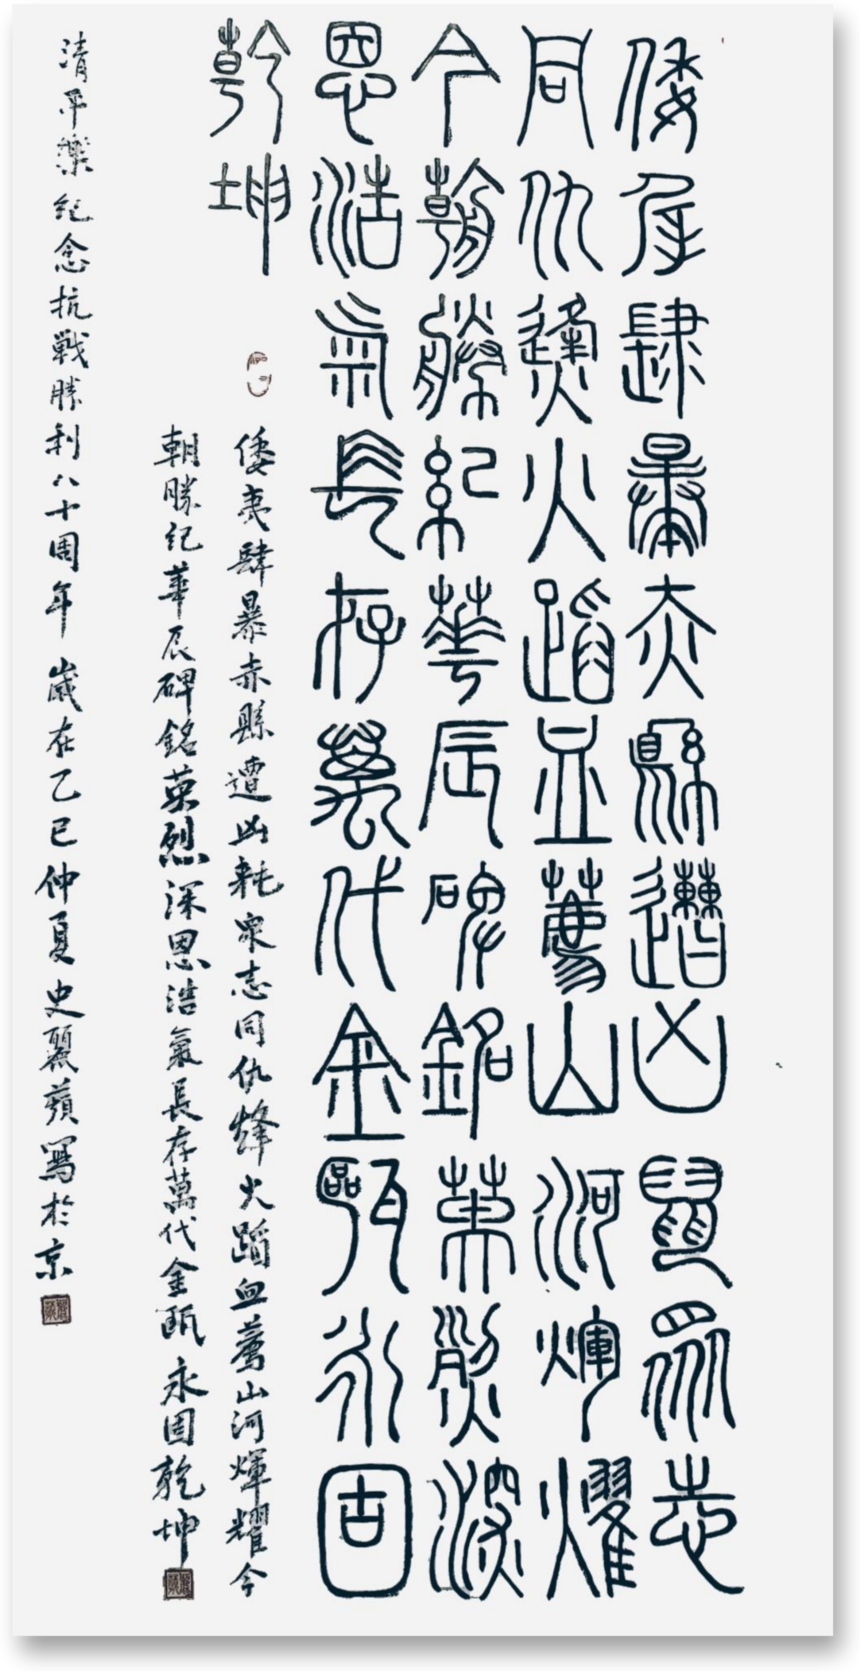 倭夷肆暴赤縣遭凶耗眾志
同仇烽火蹈血薦山河煇耀
今朝勝紀華辰碑銘英烈深
恩浩氣長存萬代金甌永固
乾坤
倭夷肆暴赤縣遭凶耗眾志同仇烽火蹈血薦山河煇耀今
朝勝紀華辰碑銘英烈深恩浩氣長存萬代金甌永固乾坤
清平樂紀念抗戰勝利八十周年 歲在乙巳仲夏史麗蘋寫於京